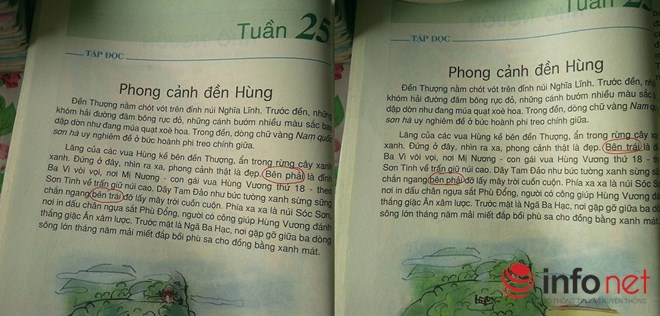 Tuần 25
TẬP ĐỌC
Phong cảnh đền Hùng
Đền Thượng nằm chót vót trên đỉnh núi Nghĩa Lĩnh. Trước đền, những
khóm hải đường đâm bông rực đỏ, những cánh bướm nhiều màu sắc bay
dập dờn như đang múa quạt xoè hoa. Trong đền, dòng chữ vàng Nam quốc
sơn hà uy nghiêm đề ở bức hoành phi treo chính giữa.
Lăng của các vua Hùng kề bên đền Thượng, ẩn trong rừng cây xanh
xanh. Đứng ở đây, nhìn ra xa, phong cảnh thật là đẹp. Bên phải là đỉnh
Ba Vì vòi vọi, nơi Mị Nương - con gái vua Hùng Vương thứ 18 - theo
Sơn Tinh về trấn giữ núi cao. Dãy Tam Đảo như bức tường xanh sừng sững
chắn ngang bên trái đỡ lấy mây trời cuồn cuộn. Phía xa xa là núi Sóc Sơn,
nơi in dấu chân ngựa sắt Phù Đổng, người có công giúp Hùng Vương đánh
thắng giặc Ân xâm lược. Trước mặt là Ngã Ba Hạc, nơi gặp gỡ giữa ba dòng
sông lớn tháng năm mải miết đắp bồi phù sa cho đồng bằng xanh mát.
Tuần 25
TẬP ĐỌC
Phong cảnh đền Hùng
Đền Thượng nằm chót vót trên đỉnh núi Nghĩa Lĩnh. Trước đền, những
khóm hải đường đâm bông rực đỏ, những cánh bướm nhiều màu sắc
dập dờn như đang múa quạt xoè hoa. Trong đền, dòng chữ vàng Nam quốc
sơn hà uy nghiêm đề ở bức hoành phi treo chính giữa.
Lăng của các vua Hùng kề bên đền Thượng, ẩn trong rừng cây
xanh. Đứng ở đây, nhìn ra xa, phong cảnh thật là đẹp. Bên trái là
Ba Vì vòi vọi, nơi Mị Nương - con gái vua Hùng Vương thứ 18 -
Sơn Tinh về trấn giữ núi cao. Dãy Tam Đảo như bức tường xanh sừng
chắn ngang bên phải đỡ lấy mây trời cuồn cuộn. Phía xa xa là núi Sóc
nơi in dấu chân ngựa sắt Phù Đổng, người có công giúp Hùng Vương
thắng giặc Ân xâm lược. Trước mặt là Ngã Ba Hạc, nơi gặp gỡ giữa ba
sông lớn tháng năm mải miết đắp bồi phù sa cho đồng bằng xanh mát.
infonet